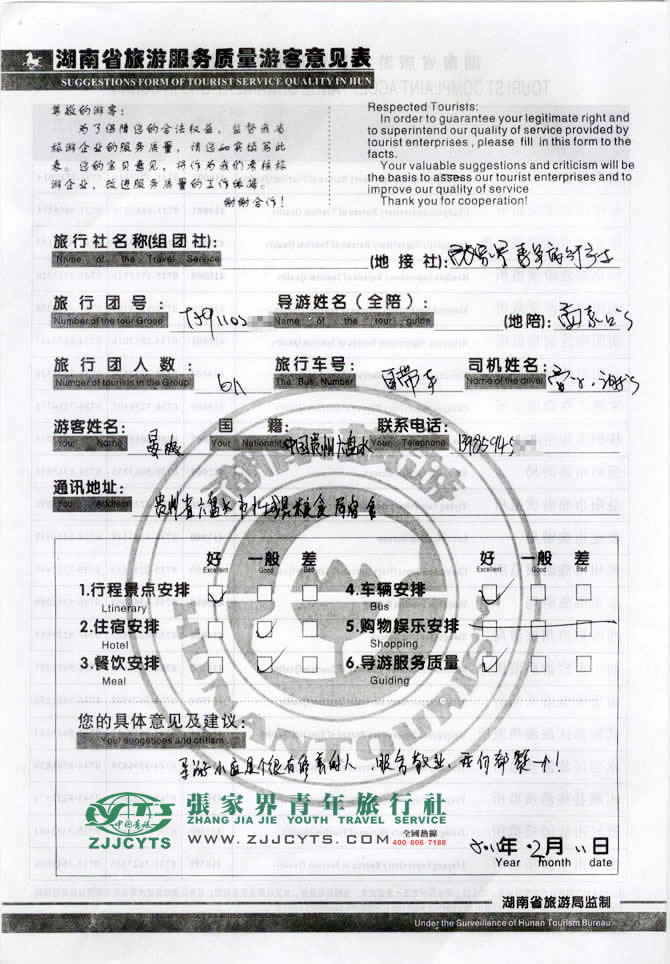 湖南省旅游服务质量游客意见表
SUGGESTIONS FORM OF TOURIST SERVICE QUALITY IN HUN
尊敬的游客：
为了保障您的合法权益，监督我省
旅游企业的服务质量，请您如实填写此
表。您的宝贝意见，将作为我们考核旅
游企业，改进服务质量的工作依据。
谢谢合作！
Respected Tourists:
In order to guarantee your legitimate right and
to superintend our quality of service provided by
tourist enterprises , please fill in this form to the
facts.
Your valuable suggestions and criticism will be
the basis to assess our tourist enterprises and to
improve our quality of service
Thank you for cooperation!
旅行社名称(组团社):
Name of the Travel Service
(地接社):
旅行团号：
Number of the tour Group
导游姓名（全陪）：
Name of the tour guide
(地陪):
旅行团人数：
Number of tourists in the Group
6人
旅行车号：
The Bus Number
自带车
司机姓名：
Name of the driver
游客姓名：
Your Name
国籍：
Your Nationality
中国贵州六盘水
联系电话：
Your Telephone
通讯地址：
Your Address
贵州省六盘水市 粮食局宿舍
好 一般 差 好 一般 差
Excellent Good Bad Excellent Good Bad
1.行程景点安排 4.车辆安排
Ltinerary Bus
2.住宿安排 5.购物娱乐安排
Hotel Shopping
3.餐饮安排 6.导游服务质量
Meal Guiding
HUNAN TOURISM
您的具体意见及建议：
Your suggetions and critism
导游小 是个很有修养的人，服务敬业，我们都赞一个！
中国青旅
ZJJCYTS
張家界青年旅行社
ZHANG JIA JIE YOUTH TRAVEL SERVICE
WWW.ZJJCYTS.COM
全國熱線
400-606-7188
2011年12月11日
Year month date
湖南省旅游局监制
Under the Surveillance of Hunan Tourism Bureau